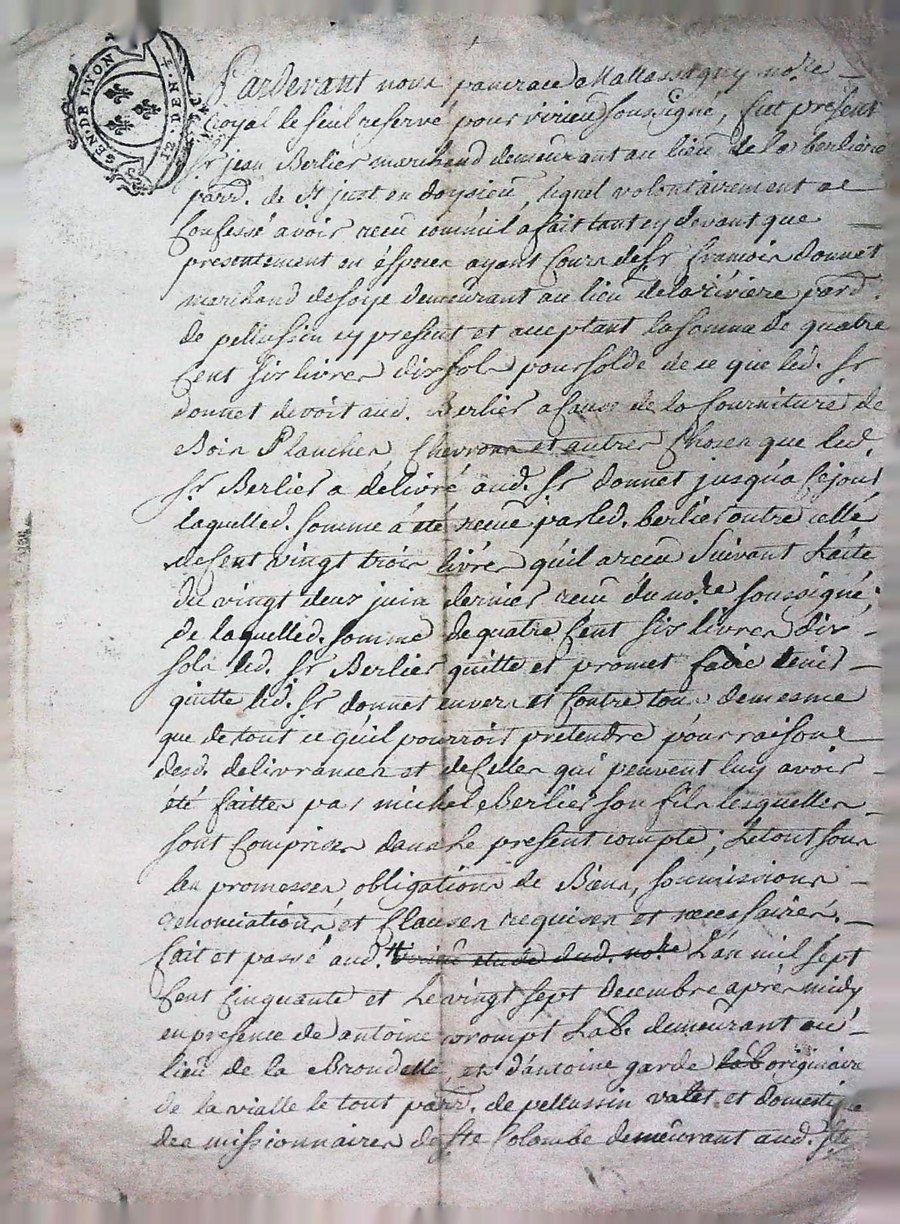 GEN. DE LYON
Pardevant nous pancrace Mattassagny no.re
Royal le seul reservé pour virieu soussigné, fut present
Sr. jean Berlier marchand demeurant au lieu de la berliere
parr. de St just en doysieu, lequel volontairement a
Confessé avoir receu comme il a fait tant cy devant que
presentement en éspeces ayant Cours de Sr. francois donnet
marchand de soye demeurant au lieu de la riviere parr.
de pellussin cy present et acceptant la somme de quatre
Cent six livres dix sols pour solde de ce que led. Sr
donnet devoit aud. Berlier a Cause de la fourniture de
Bois Planches Chevrons et autres Choses que led.
Sr. Berlier a délivré aud. Sr. donnet jusqu'a ce jour
laquelled. somme a été receue par led. berlier outre celle
de Cent vingt trois livres qu'il a receu suivant L'acte
du vingt deux juin dernier receu du no.re soussigné;
de laquelled. somme de quatre Cent six livres dix
sols led. Sr. Berlier quitte et promet faire tenir
quitte led. Sr. donnet envers et Contre tous de mesme
que de tout ce qu'il pourroit pretendre pour raison
desd. delivrances et de Celles qui peuvent luy avoir
été faittes par michel Berlier son fils lesquelles
sont Comprises dans le present compte; Le tout sous
les promesses obligations de Biens, soumissions
renonciations et Clauses requises et necessaires.
Fait et passé aud. virieu etude dud. no.re L'an mil sept
Cent Cinquante et Le vingt sept decembre après midy
en presence de antoine corompt Lab. demeurant au
lieu de la Brondelle, et d'antoine garde lab originaire
de la vialle le tout parr. de pellussin valet et domestique
des missionnaires de Ste Colombe demeurant aud. Ste